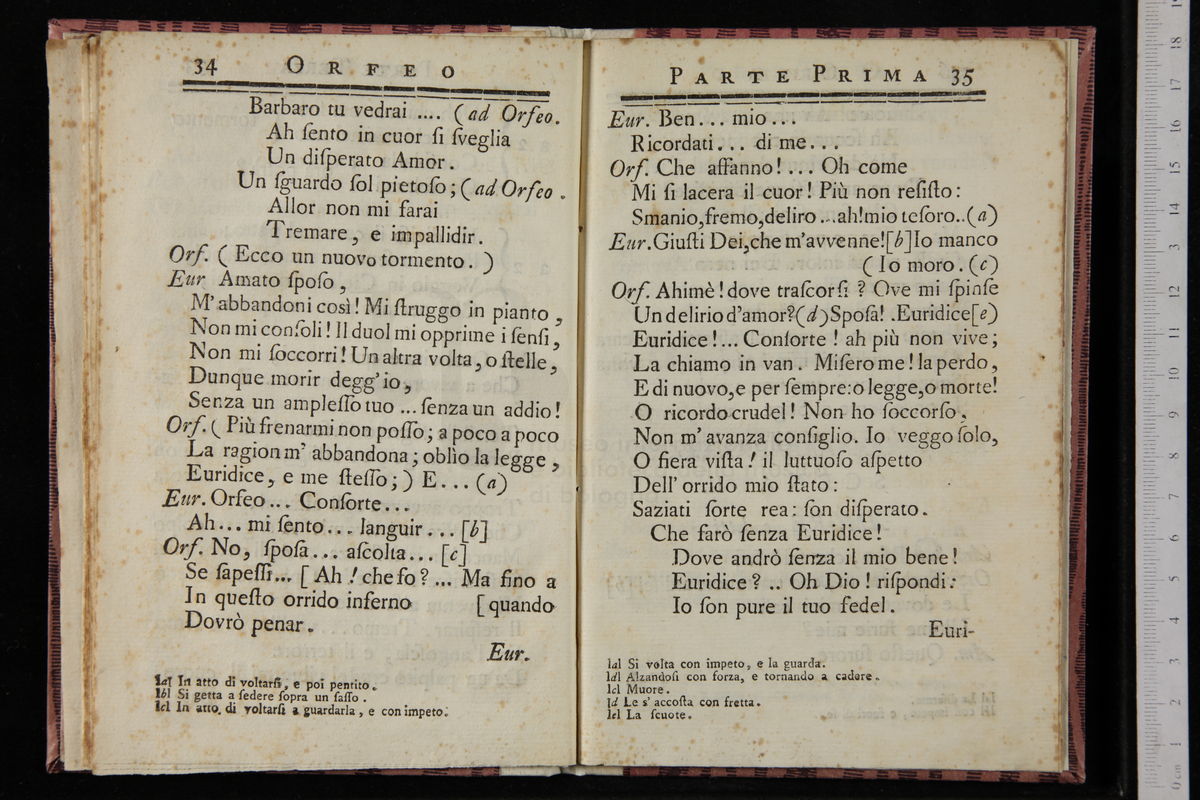 34 ORFEO
Barbaro tu vedrai .... (ad Orfeo.
Ah ſento in cuor ſi ſveglia
Un diſperato Amor.
Un ſguardo ſol pietoſo; (ad Orfeo .
Allor non mi farai
Tremare, e impallidir.
Orf. ( Ecco un nuovo tormento. )
Eur Amato ſpoſo,
M' abbandoni così! Mi ſtruggo in pianto,
Non mi conſoli! Il duol mi opprime i ſenſi,
Non mi ſoccorri! Un altra volta, o ſtelle,
Dunque morir degg' io,
Senza un ampleſſo tuo ... ſenza un addio!
Orf. ( Più frenarmi non poſſo; a poco a poco
La ragion m' abbandona; oblìo la legge,
Euridice, e me ſteſſo; ) E... (a)
Eur. Orfeo... Conſorte...
Ah... mi ſento... languir... [b]
Orf. No, ſpoſa... aſcolta... [c]
Se ſapeſſi... [ Ah! che fo?... Ma fino a
In queſto orrido inferno [quando
Dovrò penar.
Eur.
[a] In atto di voltarſi, e poi pentito.
[b] Si getta a ſedere ſopra un ſaſſo.
[c] In atto di voltarſi a guardarla, e con impeto.
PARTE PRIMA 35
Eur. Ben... mio...
Ricordati... di me...
Orf. Che affanno!... Oh come
Mi ſi lacera il cuor! Più non reſiſto:
Smanio, fremo, deliro ...ah! mio teſoro..(a)
Eur. Giuſti Dei, che m'avvenne! [b] Io manco
( Io moro. (c)
Orf. Ahimè! dove traſcorſi? Ove mi ſpinſe
Un delirio d'amor? (d) Spoſa! .Euridice [e)
Euridice!... Conſorte! ah più non vive;
La chiamo in van. Miſero me! la perdo,
E di nuovo, e per ſempre: o legge, o morte!
O ricordo crudel! Non ho ſoccorſo,
Non m' avanza conſiglio. Io veggo ſolo,
O fiera viſta! il luttuoſo aſpetto
Dell' orrido mio ſtato:
Saziati ſorte rea: ſon diſperato.
Che farò ſenza Euridice!
Dove andrò ſenza il mio bene!
Euridice? .. Oh Dio! riſpondi:
Io ſon pure il tuo fedel.
Euri-
[a] Si volta con impeto, e la guarda.
[d] Alzandoſi con forza, e tornando a cadere.
[c] Muore.
[d Le s' accoſta con fretta.
[e] La ſcuote.